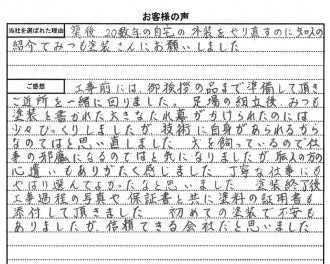 お客様の声
当社を選ばれた理由 築後20数年の自宅の外装をやり直すのに知人の
紹介でみつも塗装さんにお願いしました
ご感想 工事前には、御挨拶の品まで準備して頂き
ご近所を一緒に回りました。足場の組立後、みつも
塗装と書かれた大きなたれ幕がかけられたのには
少々びっくりしましたが、技術に自身があられるから
なのではと思い直しました 犬を飼っているので仕事
の邪魔になるのではと気になりましたが職人の方の
心遣いもありがたく感じました 丁寧な仕事にも
やはり選んでよかったなと思いました 塗装終了後
工事過程の写真や保証書と共に塗料の証用書も
添付して頂きました 初めての塗装で不安も
ありましたが、信頼できる会社だと思いました